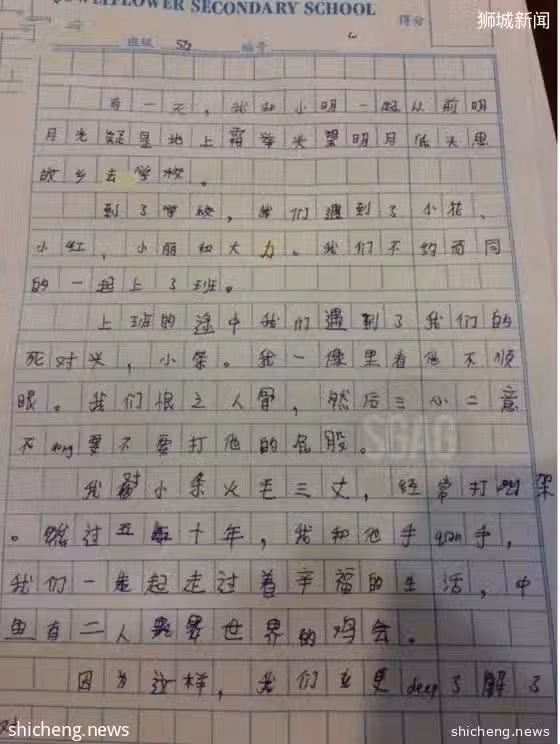 WELLFLOWER SECONDARY SCHOOL
狮城新闻
得分
班级 编号
有一天，我和小明一起从前明
月光疑是地上霜举头望明月低头思
故乡去学校。
到了学校，我们遇到了小花、
小红，小丽和大力。我们不约而同
的一起上了班。
上班的途中我们遇到了我们的
死对头，小笨。我一像里看他不顺
眼。我们恨之人骨，然后三心二意
不dong要不要打他的屁股。
SGAG
我对小笨火毛三丈，经常打架
。然过五十年，我和他手qian手，
我们一起走过着辛福的生活，中
鱼有二人世界的鸡会。
因为这样，我们更deep了解了
shicheng.news
shicheng.news